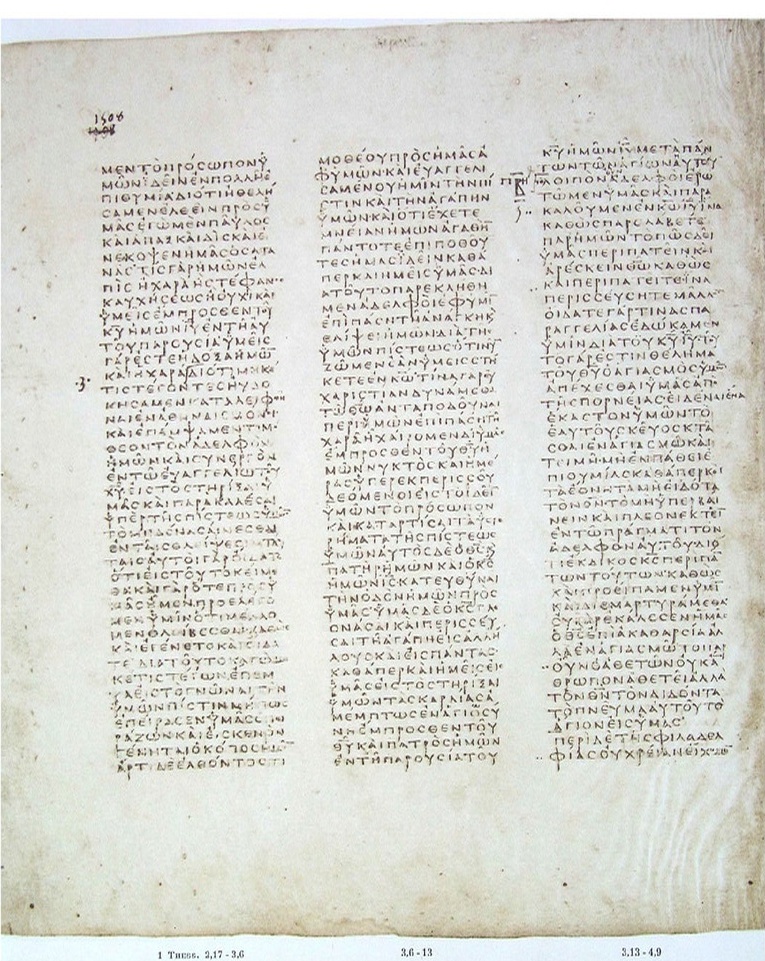 1508
ΜΕΝΤΟΠΡΟΣΩΠΟΝΥ
ΜΩΝΙΔΕΙΝΕΝΠΟΛΛΗΕ
ΠΙΘΥΜΙΑΔΙΟΤΙΗΘΕΛΗ
ΣΑΜΕΝΕΛΘΕΙΝΠΡΟΣΥ
ΜΑΣΕΓΩΜΕΝΠΑΥΛΟΣ
ΚΑΙΑΠΑΞΚΑΙΔΙΣΚΑΙΕ
ΝΕΚΟΨΕΝΗΜΑΣΟΣΑΤΑ
ΝΑΣΤΙΣΓΑΡΗΜΩΝΕΛ
ΠΙΣΗΧΑΡΑΗΣΤΕΦΑΝΟΣ
ΚΑΥΧΗΣΕΩΣΗΟΥΧΙΚΑΙ
ΥΜΕΙΣΕΜΠΡΟΣΘΕΝΤΟΥ
ΚΥΗΜΩΝΙΥΕΝΤΗΑΥ
ΤΟΥΠΑΡΟΥΣΙΑΥΜΕΙΣ
ΓΑΡΕΣΤΕΗΔΟΞΑΗΜΩ
ΚΑΙΗΧΑΡΑΔΙΟΤΙΜΗΚΕ
ΤΙΣΤΕΓΟΝΤΕΣΗΥΔΟ
ΚΗΣΑΜΕΝΚΑΤΑΛΕΙΦΘΗ
ΝΑΙΕΝΑΘΗΝΑΙΣΜΟΝΟΙ
ΚΑΙΕΠΕΜΨΑΜΕΝΤΙΜΟ
ΘΕΟΝΤΟΝΑΔΕΛΦΟΝ
ΗΜΩΝΚΑΙΣΥΝΕΡΓΟΝ
ΕΝΤΩΕΥΑΓΓΕΛΙΩΤΟΥ
ΧΥΕΙΣΤΟΣΤΗΡΙΞΑΙΥ
ΜΑΣΚΑΙΠΑΡΑΚΑΛΕΣΑΙ
ΥΠΕΡΤΗΣΠΙΣΤΕΩΣΥΜΩ
ΤΟΜΗΔΕΝΑΣΑΙΝΕΣΘΑΙ
ΕΝΤΑΙΣΘΛΕΙΨΕΣΙΝΤΑΥ
ΤΑΙΣΑΥΤΟΙΓΑΡΟΙΔΑΤΕ
ΟΤΙΕΙΣΤΟΥΤΟΚΕΙΜΕ
ΘΑΚΑΙΓΑΡΟΤΕΠΡΟΣΥ
ΜΑΣΗΜΕΝΠΡΟΕΛΕΓΟ
ΜΕΝΥΜΙΝΟΤΙΜΕΛΛΟ
ΜΕΝΘΛΙΒΕΣΘΑΙΚΑΘΩΣ
ΚΑΙΕΓΕΝΕΤΟΚΑΙΟΙΔΑ
ΤΕΔΙΑΤΟΥΤΟΚΑΓΩΜΗ
ΚΕΤΙΣΤΕΓΩΝΕΠΕΜ
ΨΑΕΙΣΤΟΓΝΩΝΑΙΤΗΝ
ΥΜΩΝΠΙΣΤΙΝΜΗΠΩΣ
ΕΠΕΙΡΑΣΕΝΥΜΑΣΟΠΕΙ
ΡΑΖΩΝΚΑΙΕΙΣΚΕΝΟΝ
ΓΕΝΗΤΑΙΟΚΟΠΟΣΗΜΩ
ΑΡΤΙΔΕΕΛΘΟΝΤΟΣΤΙ
ΜΟΘΕΟΥΠΡΟΣΗΜΑΣΑ
ΦΥΜΩΝΚΑΙΕΥΑΓΓΕΛΙ
ΣΑΜΕΝΟΥΗΜΙΝΤΗΝΠΙ
ΣΤΙΝΚΑΙΤΗΝΑΓΑΠΗΝ
ΥΜΩΝΚΑΙΟΤΙΕΧΕΤΕ
ΜΝΕΙΑΝΗΜΩΝΑΓΑΘΗ
ΠΑΝΤΟΤΕΕΠΙΠΟΘΟΥ
ΤΕΣΗΜΑΣΙΔΕΙΝΚΑΘΑ
ΠΕΡΚΑΙΗΜΕΙΣΥΜΑΣΔΙ
ΑΤΟΥΤΟΠΑΡΕΚΛΗΘΗ
ΜΕΝΑΔΕΛΦΟΙΕΦΥΜΙ
ΕΠΙΠΑΣΗΤΗΑΝΑΓΚΗΚ
ΘΛΙΨΕΙΗΜΩΝΔΙΑΤΗΣ
ΥΜΩΝΠΙΣΤΕΩΣΟΤΙΝΥ
ΖΩΜΕΝΕΑΝΥΜΕΙΣΣΤΗ
ΚΕΤΕΕΝΚΩΤΙΝΑΓΑΡΕΥ
ΧΑΡΙΣΤΙΑΝΔΥΝΑΜΕΘΑ
ΤΩΘΩΑΝΤΑΠΟΔΟΥΝΑΙ
ΠΕΡΙΥΜΩΝΕΠΙΠΑΣΗΤΗ
ΧΑΡΑΗΧΑΙΡΟΜΕΝΔΙΥΜΑΣ
ΕΜΠΡΟΣΘΕΝΤΟΥΘΥΗ
ΜΩΝΝΥΚΤΟΣΚΑΙΗΜΕ
ΡΑΣΥΠΕΡΕΚΠΕΡΙΣΣΟΥ
ΔΕΟΜΕΝΟΙΕΙΣΤΟΙΔΕΙ
ΥΜΩΝΤΟΠΡΟΣΩΠΟΝ
ΚΑΙΚΑΤΑΡΤΙΣΑΙΤΑΥΣΤΕ
ΡΗΜΑΤΑΤΗΣΠΙΣΤΕΩΣ
ΥΜΩΝΑΥΤΟΣΔΕΟΘΣΚ
ΠΑΤΗΡΗΜΩΝΚΑΙΟΚΣ
ΗΜΩΝΙΣΚΑΤΕΥΘΥΝΑΙ
ΤΗΝΟΔΟΝΗΜΩΝΠΡΟΣ
ΥΜΑΣΥΜΑΣΔΕΟΚΣΠΛΕ
ΟΝΑΣΑΙΚΑΙΠΕΡΙΣΣΕΥ
ΣΑΙΤΗΑΓΑΠΗΕΙΣΑΛΛΗ
ΛΟΥΣΚΑΙΕΙΣΠΑΝΤΑΣ
ΚΑΘΑΠΕΡΚΑΙΗΜΕΙΣΕΙΣ
ΥΜΑΣΕΙΣΤΟΣΤΗΡΙΞΑΙ
ΥΜΩΝΤΑΣΚΑΡΔΙΑΣΑ
ΜΕΜΠΤΩΣΕΝΑΓΙΩΣΥ
ΝΗΕΜΠΡΟΣΘΕΝΤΟΥ
ΘΥΚΑΙΠΑΤΡΟΣΗΜΩΝ
ΕΝΤΗΠΑΡΟΥΣΙΑΤΟΥ
ΚΥΗΜΩΝΙΥΜΕΤΑΠΑΝ
ΤΩΝΤΩΝΑΓΙΩΝΑΥΤΟΥ
ΛΟΙΠΟΝΑΔΕΛΦΟΙΕΡΩ
ΤΩΜΕΝΥΜΑΣΚΑΙΠΑΡΑ
ΚΑΛΟΥΜΕΝΕΝΚΩΙΥΙΝΑ
ΚΑΘΩΣΠΑΡΕΛΑΒΕΤΕ
ΠΑΡΗΜΩΝΤΟΠΩΣΔΕΙ
ΥΜΑΣΠΕΡΙΠΑΤΕΙΝΚΑΙ
ΑΡΕΣΚΕΙΝΘΩΚΑΘΩΣ
ΚΑΙΠΕΡΙΠΑΤΕΙΤΕΙΝΑ
ΠΕΡΙΣΣΕΥΣΗΤΕΜΑΛΛΟΝ
ΟΙΔΑΤΕΓΑΡΤΙΝΑΣΠΑ
ΡΑΓΓΕΛΙΑΣΕΔΩΚΑΜΕΝ
ΥΜΙΝΔΙΑΤΟΥΚΥΙΥΤΟΥ
ΤΟΓΑΡΕΣΤΙΝΘΕΛΗΜΑ
ΤΟΥΘΥΟΑΓΙΑΣΜΟΣΥΜΩ
ΑΠΕΧΕΣΘΑΙΥΜΑΣΑΠΟ
ΤΗΣΠΟΡΝΕΙΑΣΕΙΔΕΝΑΙΕΝΑ
ΕΚΑΣΤΟΝΥΜΩΝΤΟ
ΕΑΥΤΟΥΣΚΕΥΟΣΚΤΑ
ΣΘΑΙΕΝΑΓΙΑΣΜΩΚΑΙ
ΤΕΙΜΗΜΗΕΝΠΑΘΕΙΕ
ΠΙΘΥΜΙΑΣΚΑΘΑΠΕΡΚΑΙ
ΤΑΕΘΝΗΤΑΜΗΕΙΔΟΤΑ
ΤΟΝΘΝΤΟΜΗΥΠΕΡΒΑΙ
ΝΕΙΝΚΑΙΠΛΕΟΝΕΚΤΕΙ
ΕΝΤΩΠΡΑΓΜΑΤΙΤΟΝ
ΑΔΕΛΦΟΝΑΥΤΟΥΔΙΟ
ΤΙΕΚΔΙΚΟΣΚΣΠΕΡΙΠΑ
ΤΩΝΤΟΥΤΩΝΚΑΘΩΣ
ΚΑΙΠΡΟΕΙΠΑΜΕΝΥΜΙ
ΚΑΙΔΙΕΜΑΡΤΥΡΑΜΕΘΑ
ΟΥΓΑΡΕΚΑΛΕΣΕΝΗΜΑΣ
ΟΘΣΕΠΙΑΚΑΘΑΡΣΙΑΑΛ
ΛΑΕΝΑΓΙΑΣΜΩΤΟΙΓΑΡ
ΟΥΝΟΑΘΕΤΩΝΟΥΚΑ
ΘΡΩΠΟΝΑΘΕΤΕΙΑΛΛΑ
ΤΟΝΘΝΤΟΝΔΙΔΟΝΤΑ
ΤΟΠΝΕΥΜΑΑΥΤΟΥΤΟ
ΑΓΙΟΝΕΙΣΥΜΑΣ
ΠΕΡΙΔΕΤΗΣΦΙΛΑΔΕΛ
ΦΙΑΣΟΥΧΡΕΙΑΝΕΙΧΟΜΕ
1 Thess. 2,17 - 3,6
3,6 - 13
3,13 - 4,9